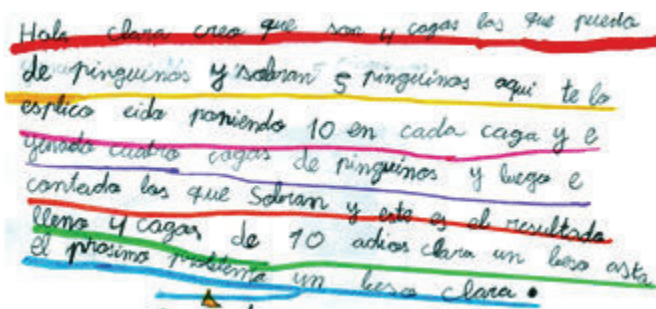 Hola clara creo que son 4 cagas las que puedo
de pinguinos y sobran 5 pinguinos aqui te lo
esplico eido poniendo 10 en cada caga y e
yenado cuatro cagas de pinguinos y luego e
contado los que Sobran y este es el resultado
lleno 4 cagas de 10 adios clara un beso asta
el prosimo problema un beso clara.